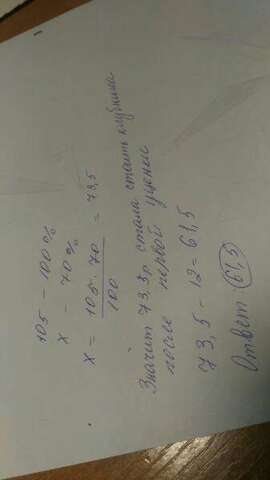 105 - 100%
x - 70%
x = 105 · 70 / 100 = 73,5
Значит 73,5р стала стоить клубника
после первой уценки
73,5 - 12 = 61,5
Ответ: 61,5